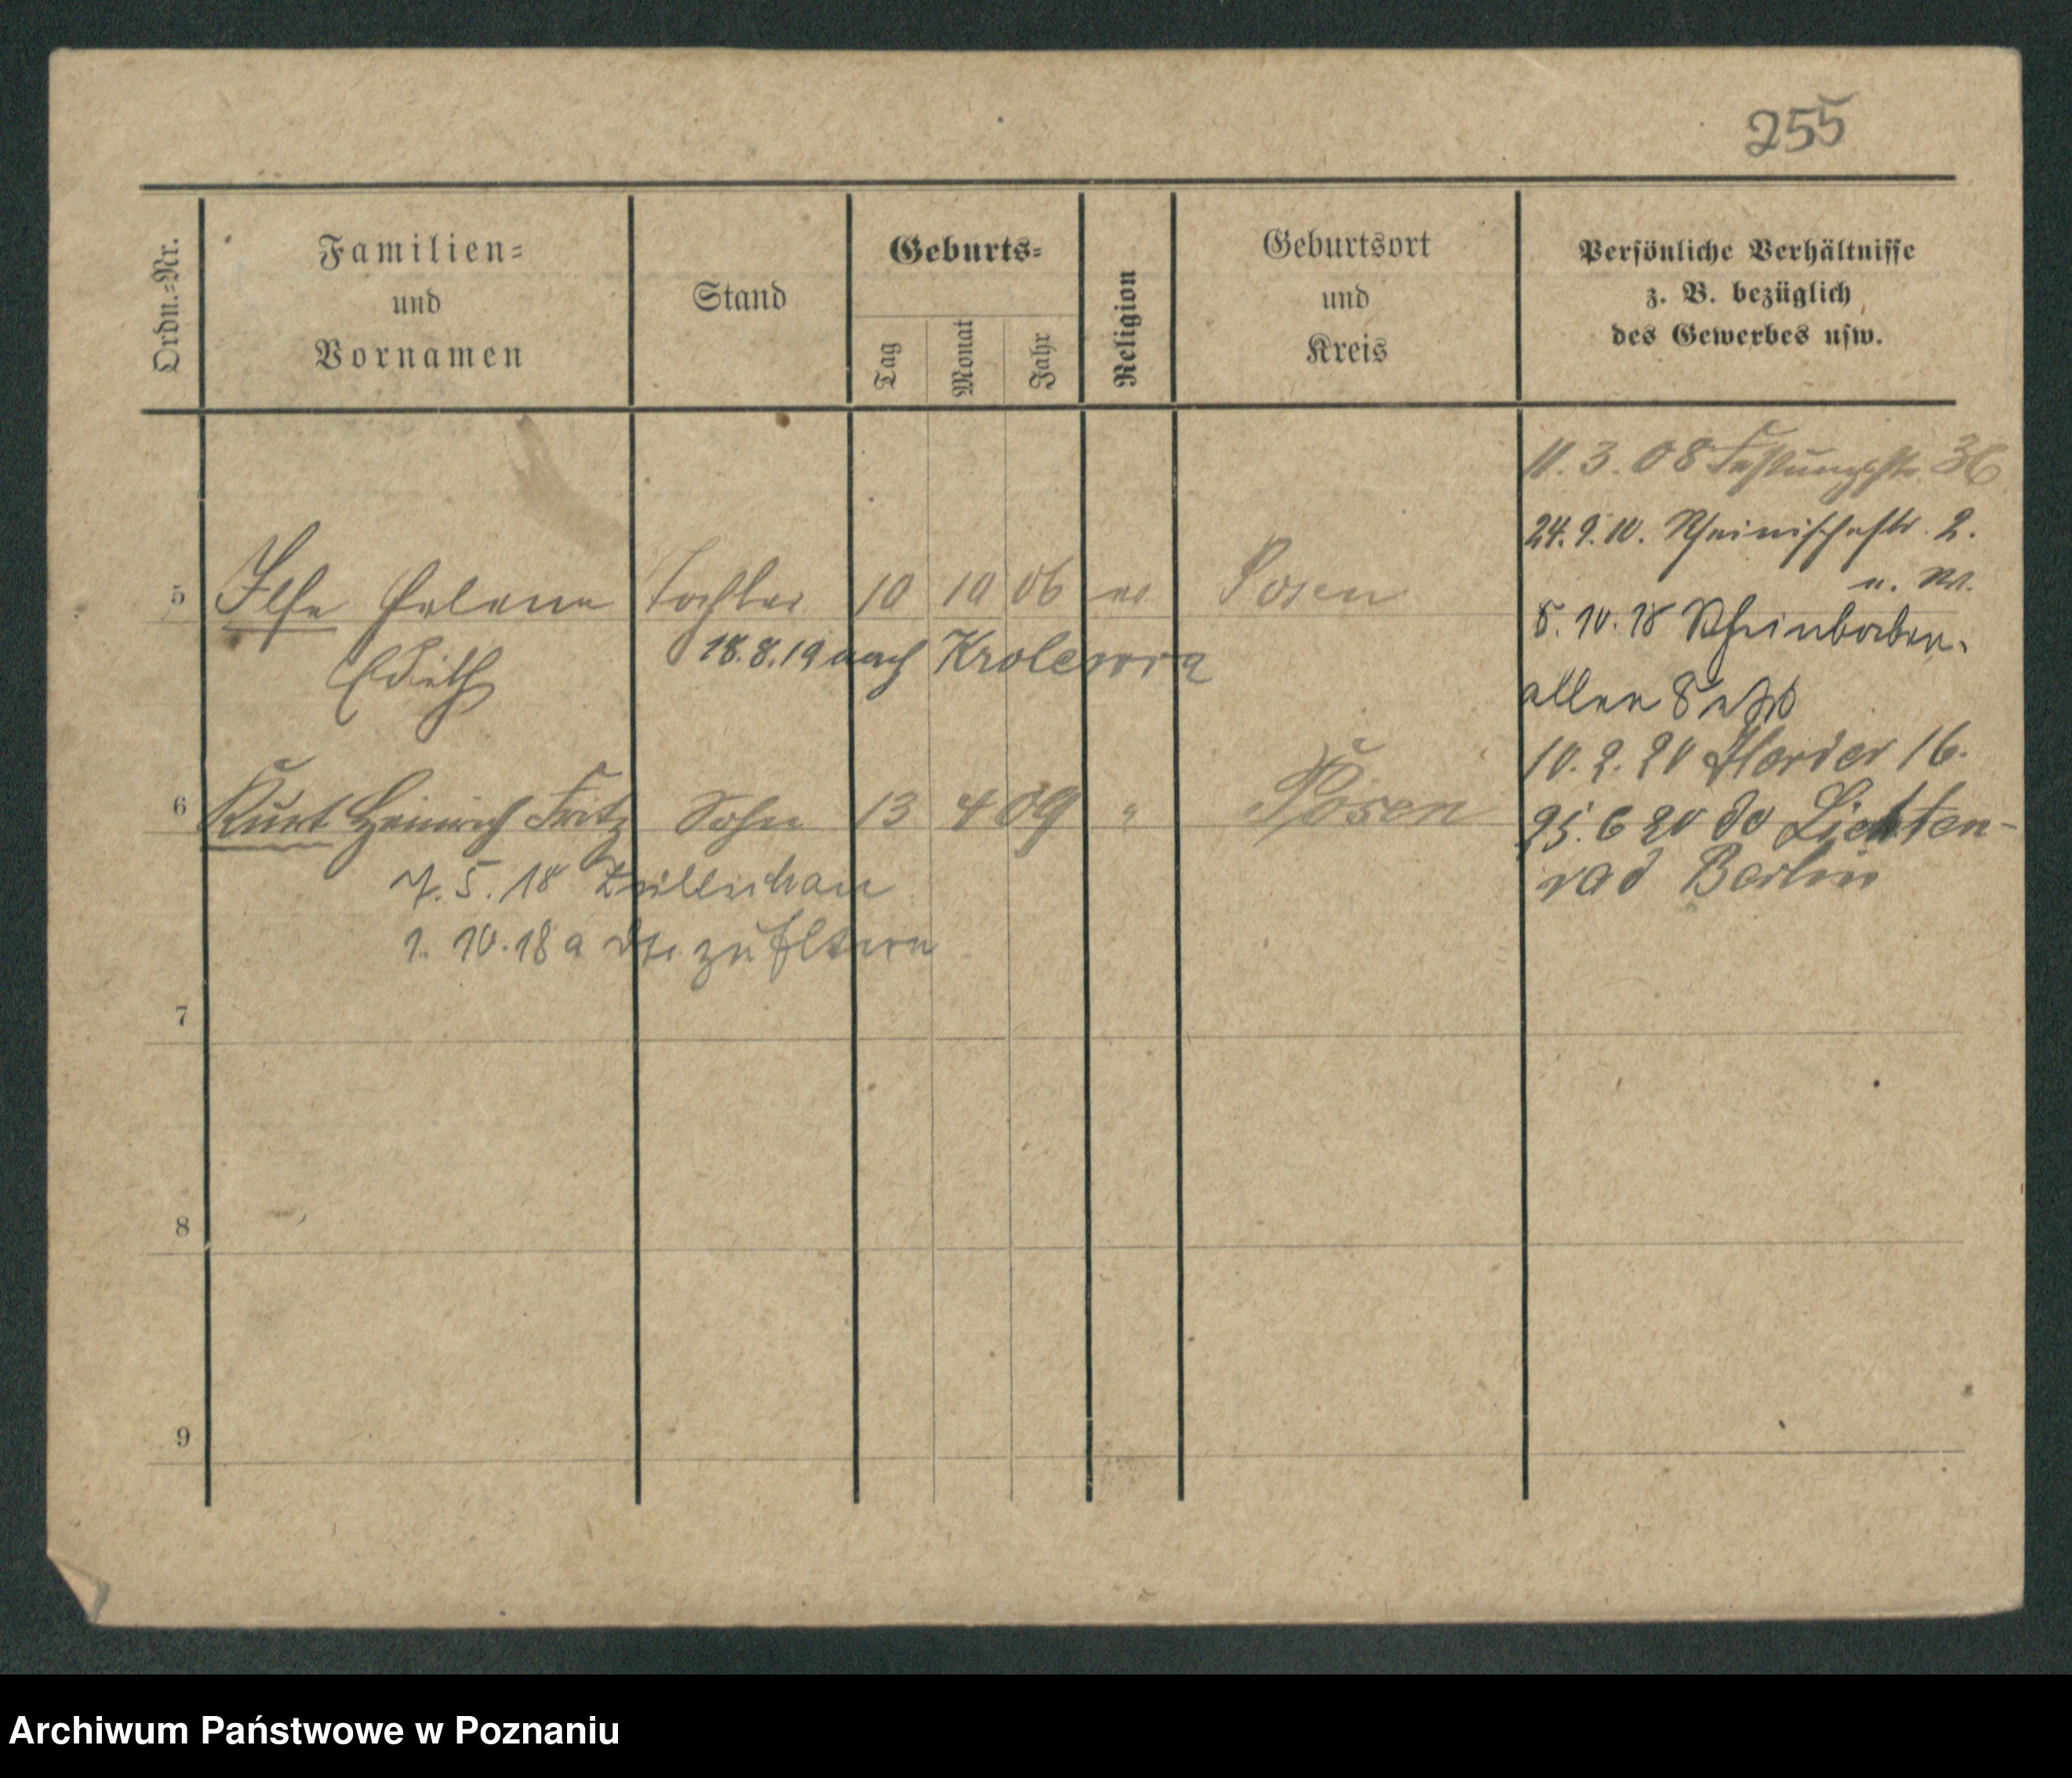 255
Ordn.-Nr.
Familien-
und
Vornamen
Stand
Geburts-
Tag
Monat
Jahr
Religion
Geburtsort
und
Kreis
Persönliche Verhältnisse
z. B. bezüglich
des Gewerbes usw.
11. 3. 08 Festungsstr. 36
24. 9. 10. Rheinischestr. 2.
u. W.
5 Ilse Helene Tochter 10 10 06 ev. Posen
Edith
18. 8. 19 nach
8. 10. 18 Rheinbaben-
allee
10. 2. 20 16.
6 Kurt Heinrich Fritz Sohn 13 4 09 " Posen
25. 6 20 do Lichten-
rad Berlin
7. 5. 18 Züllichau
1. 10. 18 a zu Eltern
7
8
9
Archiwum Państwowe w Poznaniu